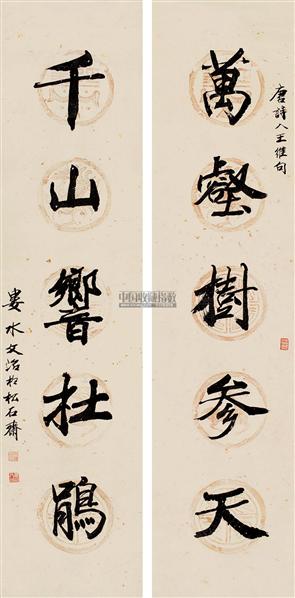 唐詩人王維句
萬壑樹參天
千山響杜鵑
婁水文治於松石齋
中国收藏指数